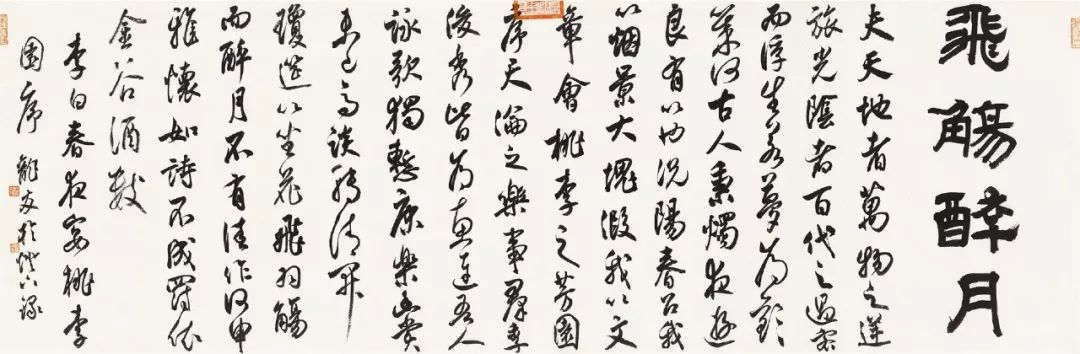 飛觴醉月
夫天地者萬物之逆
旅光陰者百代之過客
而浮生若夢為歡
幾何古人秉燭夜遊
良有以也況陽春召我
以烟景大塊假我以文
章會桃李之芳園
序天倫之樂事群季
俊秀皆為惠連吾人
詠歌獨慙康樂幽賞
未已高談轉清開
瓊筵以坐花飛羽觴
而醉月不有佳作何申
雅懷如詩不成罰依
金谷酒數
李白春夜宴桃李
園序